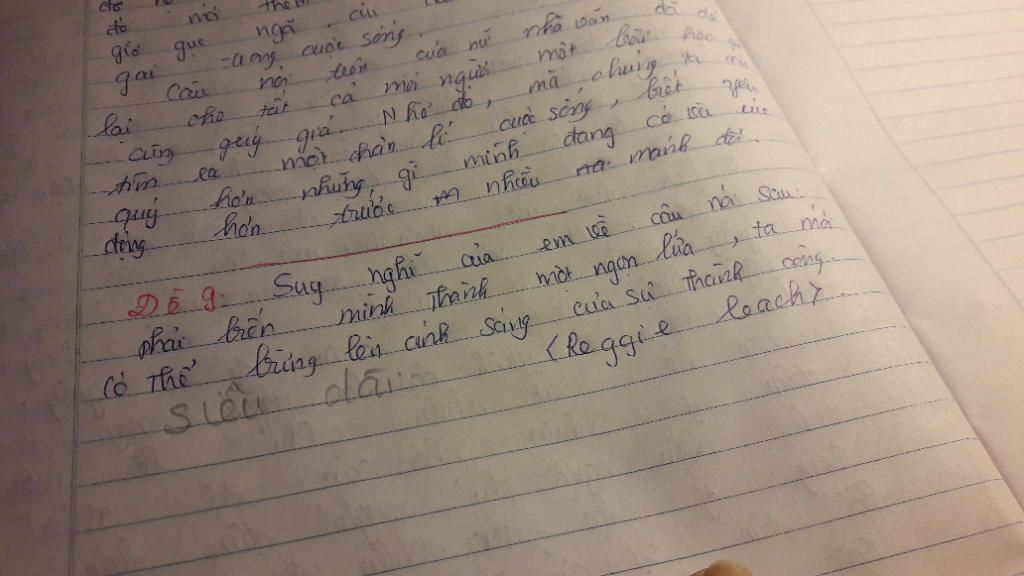 gục ngã.
cuộc sống.
Câu nói trên của nữ nhà văn đó để
lại cho tất cả mọi người một bài học
cũng quý giá. Nhờ đó, mà chúng ta
tìm ra một chân lí cuộc sống, biết yêu
quý hơn những gì mình đang có và
động hơn trước nhiều
Đề 9: Suy nghĩ của em về câu nói sau:
phải biến mình thành một ngọn lửa, ta mới
có thể bừng lên ánh sáng của sự thành công.
<Reggie leach>
siêu dài